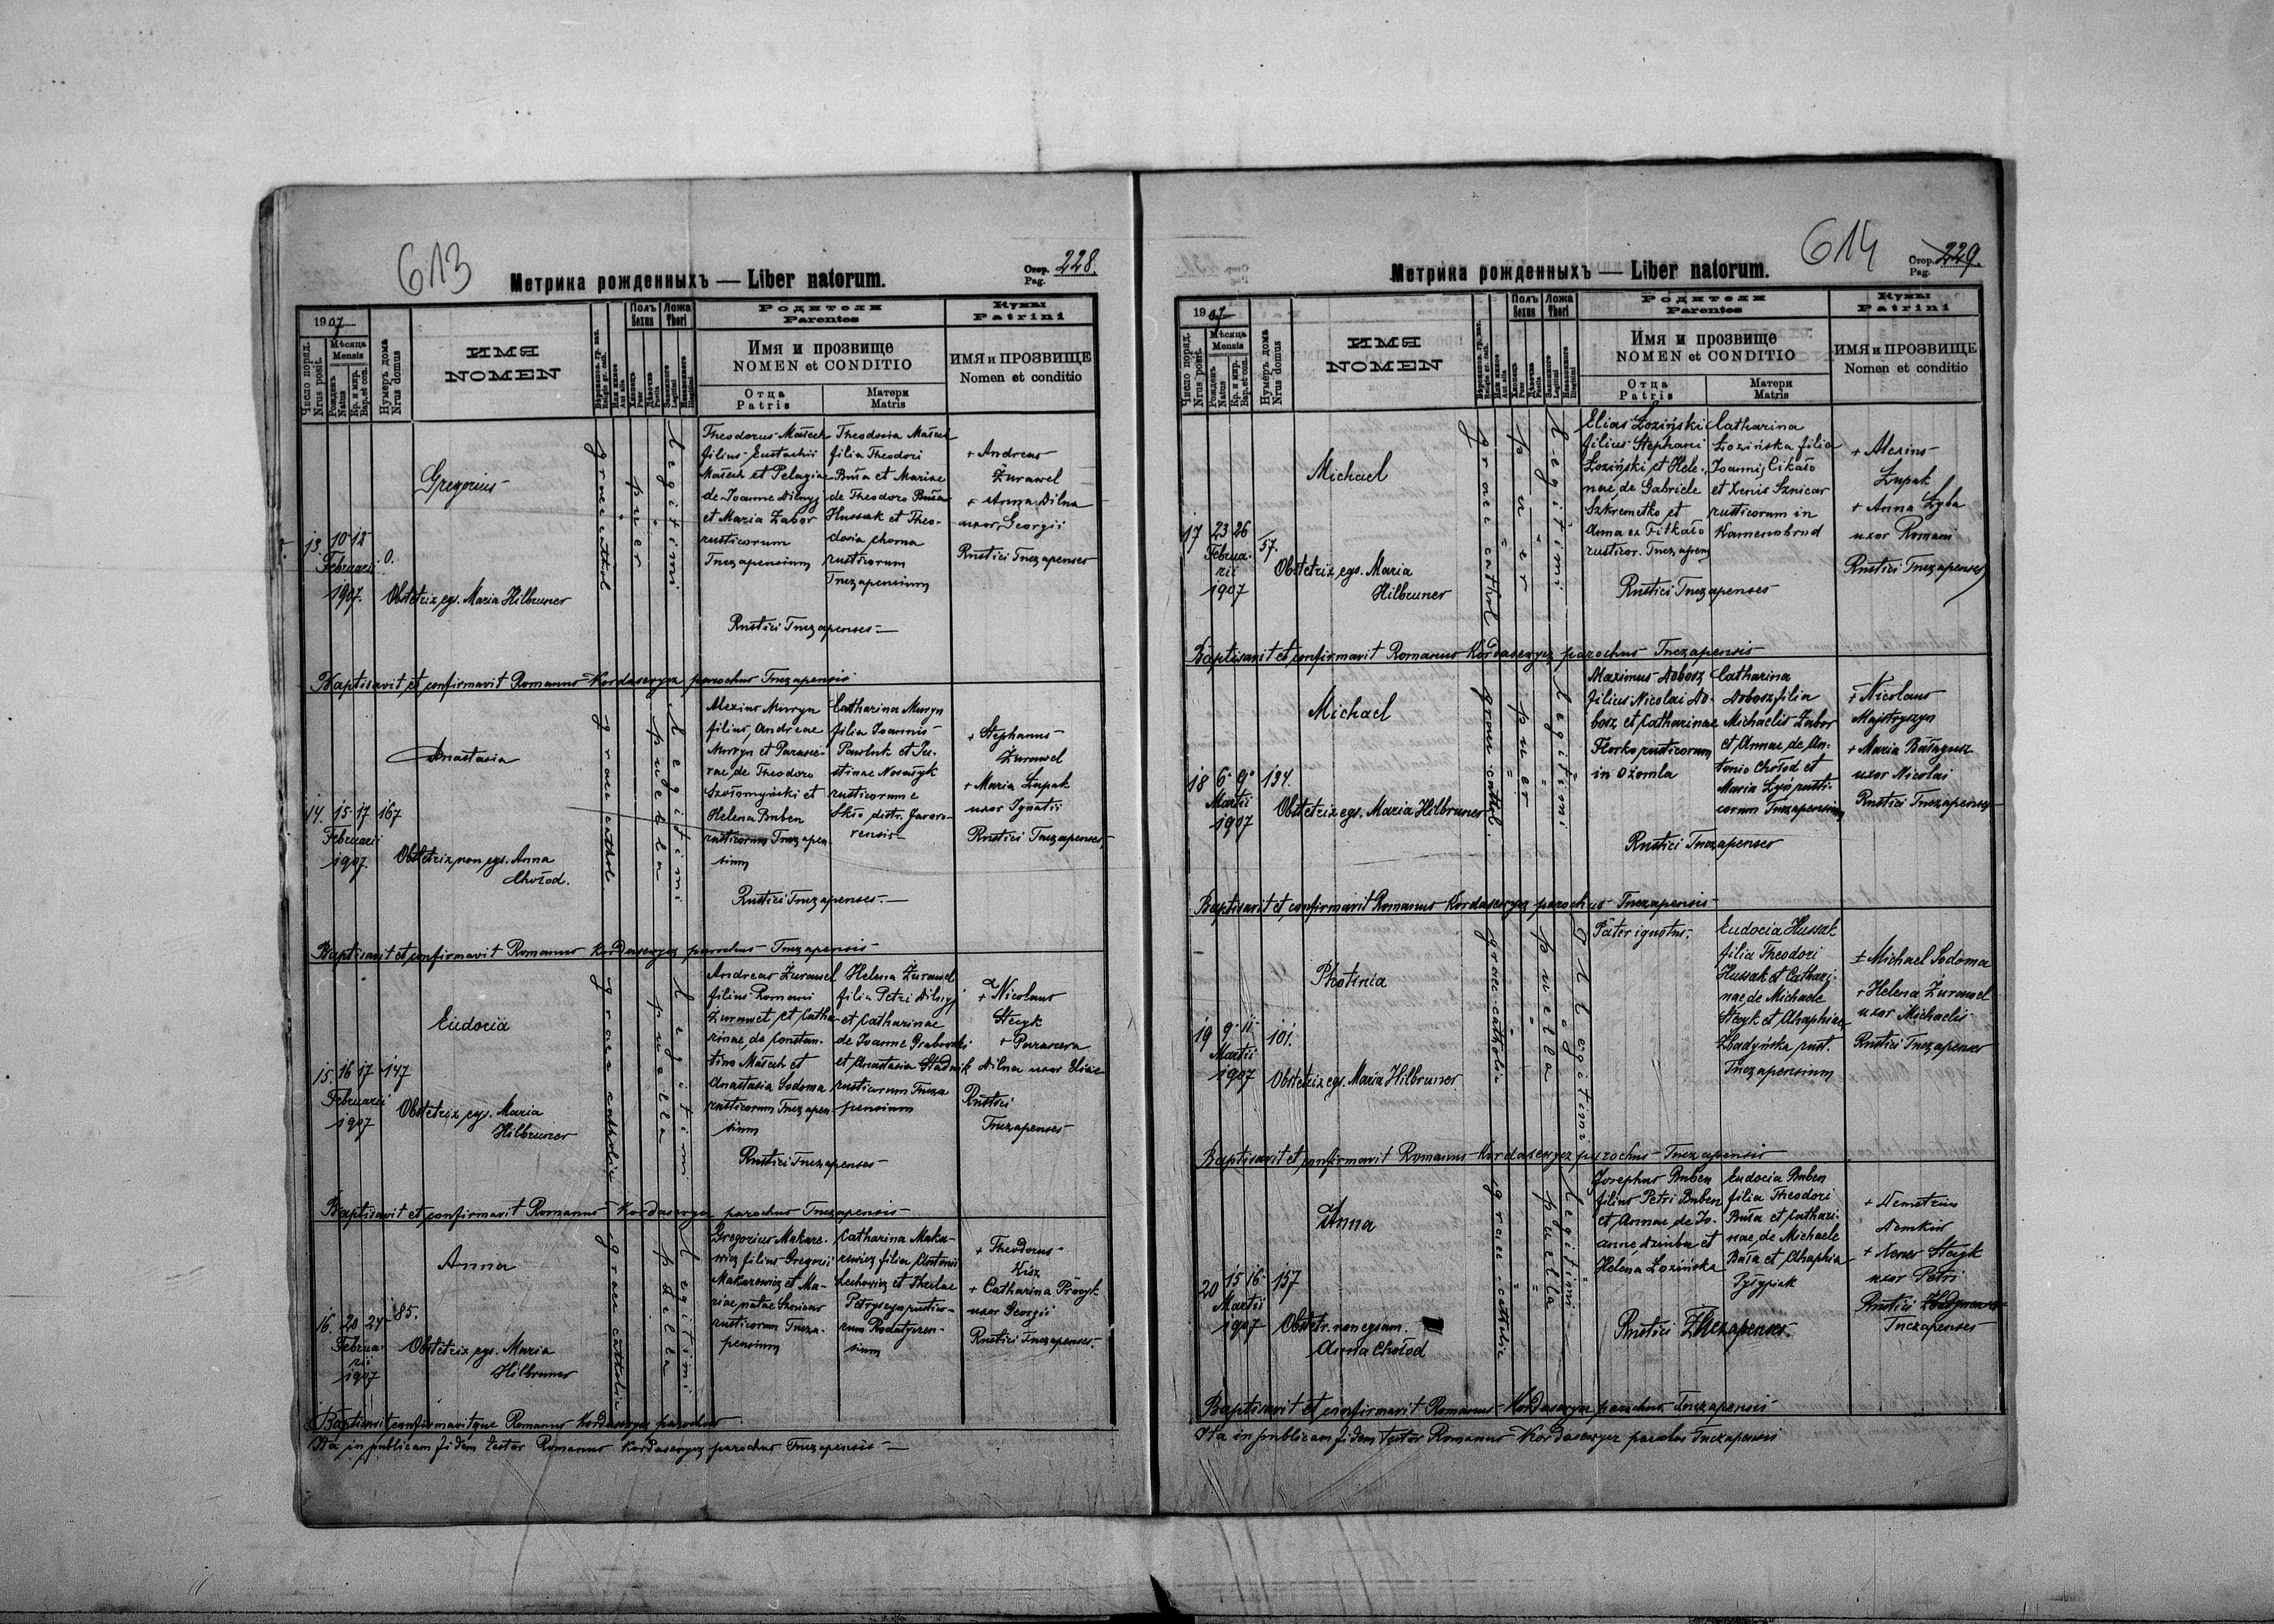 613
Метрика рожденныхъ — Liber natorum.
Стор. Pag. 228.
1907
Число поряд. Nrus posit.
Мѣсяца Mensis
Рожденъ Natus
Кр. и мир. Bap. et con.
Нумеръ дома Nrus domus
ИМЯ
NOMEN
Полъ Sexus
Ложа Thori
Родители
Parentes
Имя и прозвище
NOMEN et CONDITIO
Отца Patris
Матери Matris
Кумы
Patrini
ИМЯ и ПРОЗВИЩЕ
Nomen et conditio
13. 10 12
Februarii
1907.
0.
Gregorius
Obstetrix egs. Maria Hilbruner
graeci cathol
puer
Legitimi
Theodorus Małech
filius Eustachii
Małech et Pelagiae
de Joanne Dilnyj
et Maria Zabor
rusticorum
Tuczapensium
Theodosia Małech
filia Theodori
Buła et Mariae
de Theodoro
Hussak et Theo-
dosia Chorna
rusticorum
Tuczapensium
Rustici Tuczapenses
+ Andreas
Żurawel
+ Anna Dilna
uxor Georgii
Rustici Tuczapenses
Baptisavit et confirmavit Romanus Kordasewycz parochus Tuczapensis
14. 15 17
Februarii
1907.
167
Anastasia
Obstetrix non egs. Anna
Chołod.
graeci cathol
puella
Legitimi
Alexius Muryn
filius Andreae
Muryn et Parasce-
vae, de Theodoro
Szołomyjski et
Helena Buben
rusticorum Tuczapen-
sium
Catharina Muryn
filia Joannis
Pawluk et Ju-
stinae Nosałyk
rusticorum e
Skło, distr. Javoro-
vensis
Rustici Tuczapenses.
+ Stephanus
Żurawel
+ Maria Łupak
uxor Ignatii
Rustici Tuczapenses
Baptisavit et confirmavit Romanus Kordasewycz parochus Tuczapensis
15. 16 17
Februarii
1907
147
Eudocia
Obstetrix egs. Maria
Hilbruner
graeci catholici
puella
Legitimi
Andreas Żurawel
filius Romani
Żurawel et Catha-
rinae, de Constan-
tino Małech et
Anastasia Sodoma
rusticorum Tuczapen-
sium
Helena Żurawel
filia Petri Dilnyj
et Catharinae
de Joanne Grabowski
et Anastasia Stadnik
rusticorum Tucza-
pensium
Rustici Tuczapenses
+ Nicolaus
Stecyk
+ Parasceva
Dilna uxor Eliae
Rustici
Tuczapenses
Baptisavit et confirmavit Romanus Kordasewycz parochus Tuczapensis
16. 20 24
Februa-
rii
1907
85.
Anna
Obstetrix egs. Maria
Hilbruner
graeci catholici
puella
Legitimi
Gregorius Makare-
wicz filius Gregorii
Makarewicz et Ma-
riae natae Sznicar
rusticorum Tucza-
pensium
Catharina Maka-
rewicz filia Antonii
Lechowicz et Theclae
Petryszyn rustico-
rum Rodatyczen-
sium
+ Theodorus
Kisz
+ Catharina Procyk
uxor Georgii
Rustici Tuczapenses.
Baptisavit confirmavitque Romanus Kordasewycz parochus
Ita in publicam fidem testor Romanus Kordasewycz parochus Tuczapensis
614
Метрика рожденныхъ — Liber natorum.
Стор. Pag. 229.
1907
Число поряд. Nrus posit.
Мѣсяца Mensis
Рожденъ Natus
Кр. и мир. Bap. et con.
Нумеръ дома Nrus domus
ИМЯ
NOMEN
Полъ Sexus
Ложа Thori
Родители
Parentes
Имя и прозвище
NOMEN et CONDITIO
Отца Patris
Матери Matris
Кумы
Patrini
ИМЯ и ПРОЗВИЩЕ
Nomen et conditio
17 23 26
Februa-
rii
1907
57.
Michael
Obstetrix egs. Maria
Hilbruner
graeci cathol
puer
Legitimi
Elias Łoziński
filius Stephani
Łoziński et Hele-
nae, de Gabriele
Szkremetko et
Anna ex Fitkało
rusticor. Tuczapens
Catharina
Łozińska filia
Joannis Cikało
et Xenis Sznicar
rusticorum in
Kamenobrod
Rustici Tuczapenses
+ Alexius
Łupak
+ Anna Łyba
uxor Romani
Rustici Tuczapenses
Baptisavit et confirmavit Romanus Kordasewycz parochus Tuczapensis
18 6. 9.
Martii
1907
194.
Michael
Obstetrix egs. Maria Hilbruner
graeci cathol.
puer
Legitimi
Maximus Dobosz
filius Nicolai Do-
bosz et Catharinae
Florko rusticorum
in Ożomla
Catharina
Dobosz filia
Michaelis Zabor
et Annae, de An-
tonio Chołod et
Maria Łyń rusti-
corum Tuczapensium
Rustici Tuczapenses
+ Nicolaus
Majstryszyn
+ Maria Bałagusz
uxor Nicolai
Rustici Tuczapenses
Baptisavit et confirmavit Romanus Kordasewycz parochus Tuczapensis
19 9. 11.
Martii
1907
101.
Photinia
Obstetrix egs. Maria Hilbruner
graeci-catholici
puella
Illegitimi
Pater ignotus.
Eudocia Hussak
filia Theodori
Hussak et Cathari-
nae, de Michaele
Stecyk et Ahaphia
Zbadyńska rust.
Tuczapensium
+ Michael Sodoma
+ Helena Żurawel
uxor Michaelis
Rustici Tuczapenses
Baptisavit et confirmavit Romanus Kordasewycz parochus Tuczapensis
20 15 16.
Martii
1907
157
Anna
Obstetr. non egsam.
Anna Chołod
graeci-catholici
puella
Legitimi
Josephus Buben
filius Petri Buben
et Annae, de Jo-
anne Dziuba et
Helena Łozińska
Eudocia Buben
filia Theodori
Buła et Cathari-
nae, de Michaele
Buła et Ahaphia
Pyłypiak
Rustici Tuczapenses.
+ Demetrius
Demkiw
+ Xenia Stecyk
uxor Petri
Rustici
Tuczapenses
Baptisavit et confirmavit Romanus Kordasewycz parochus Tuczapensis
Ita in publicam fidem testor Romanus Kordasewycz parochus Tuczapensis